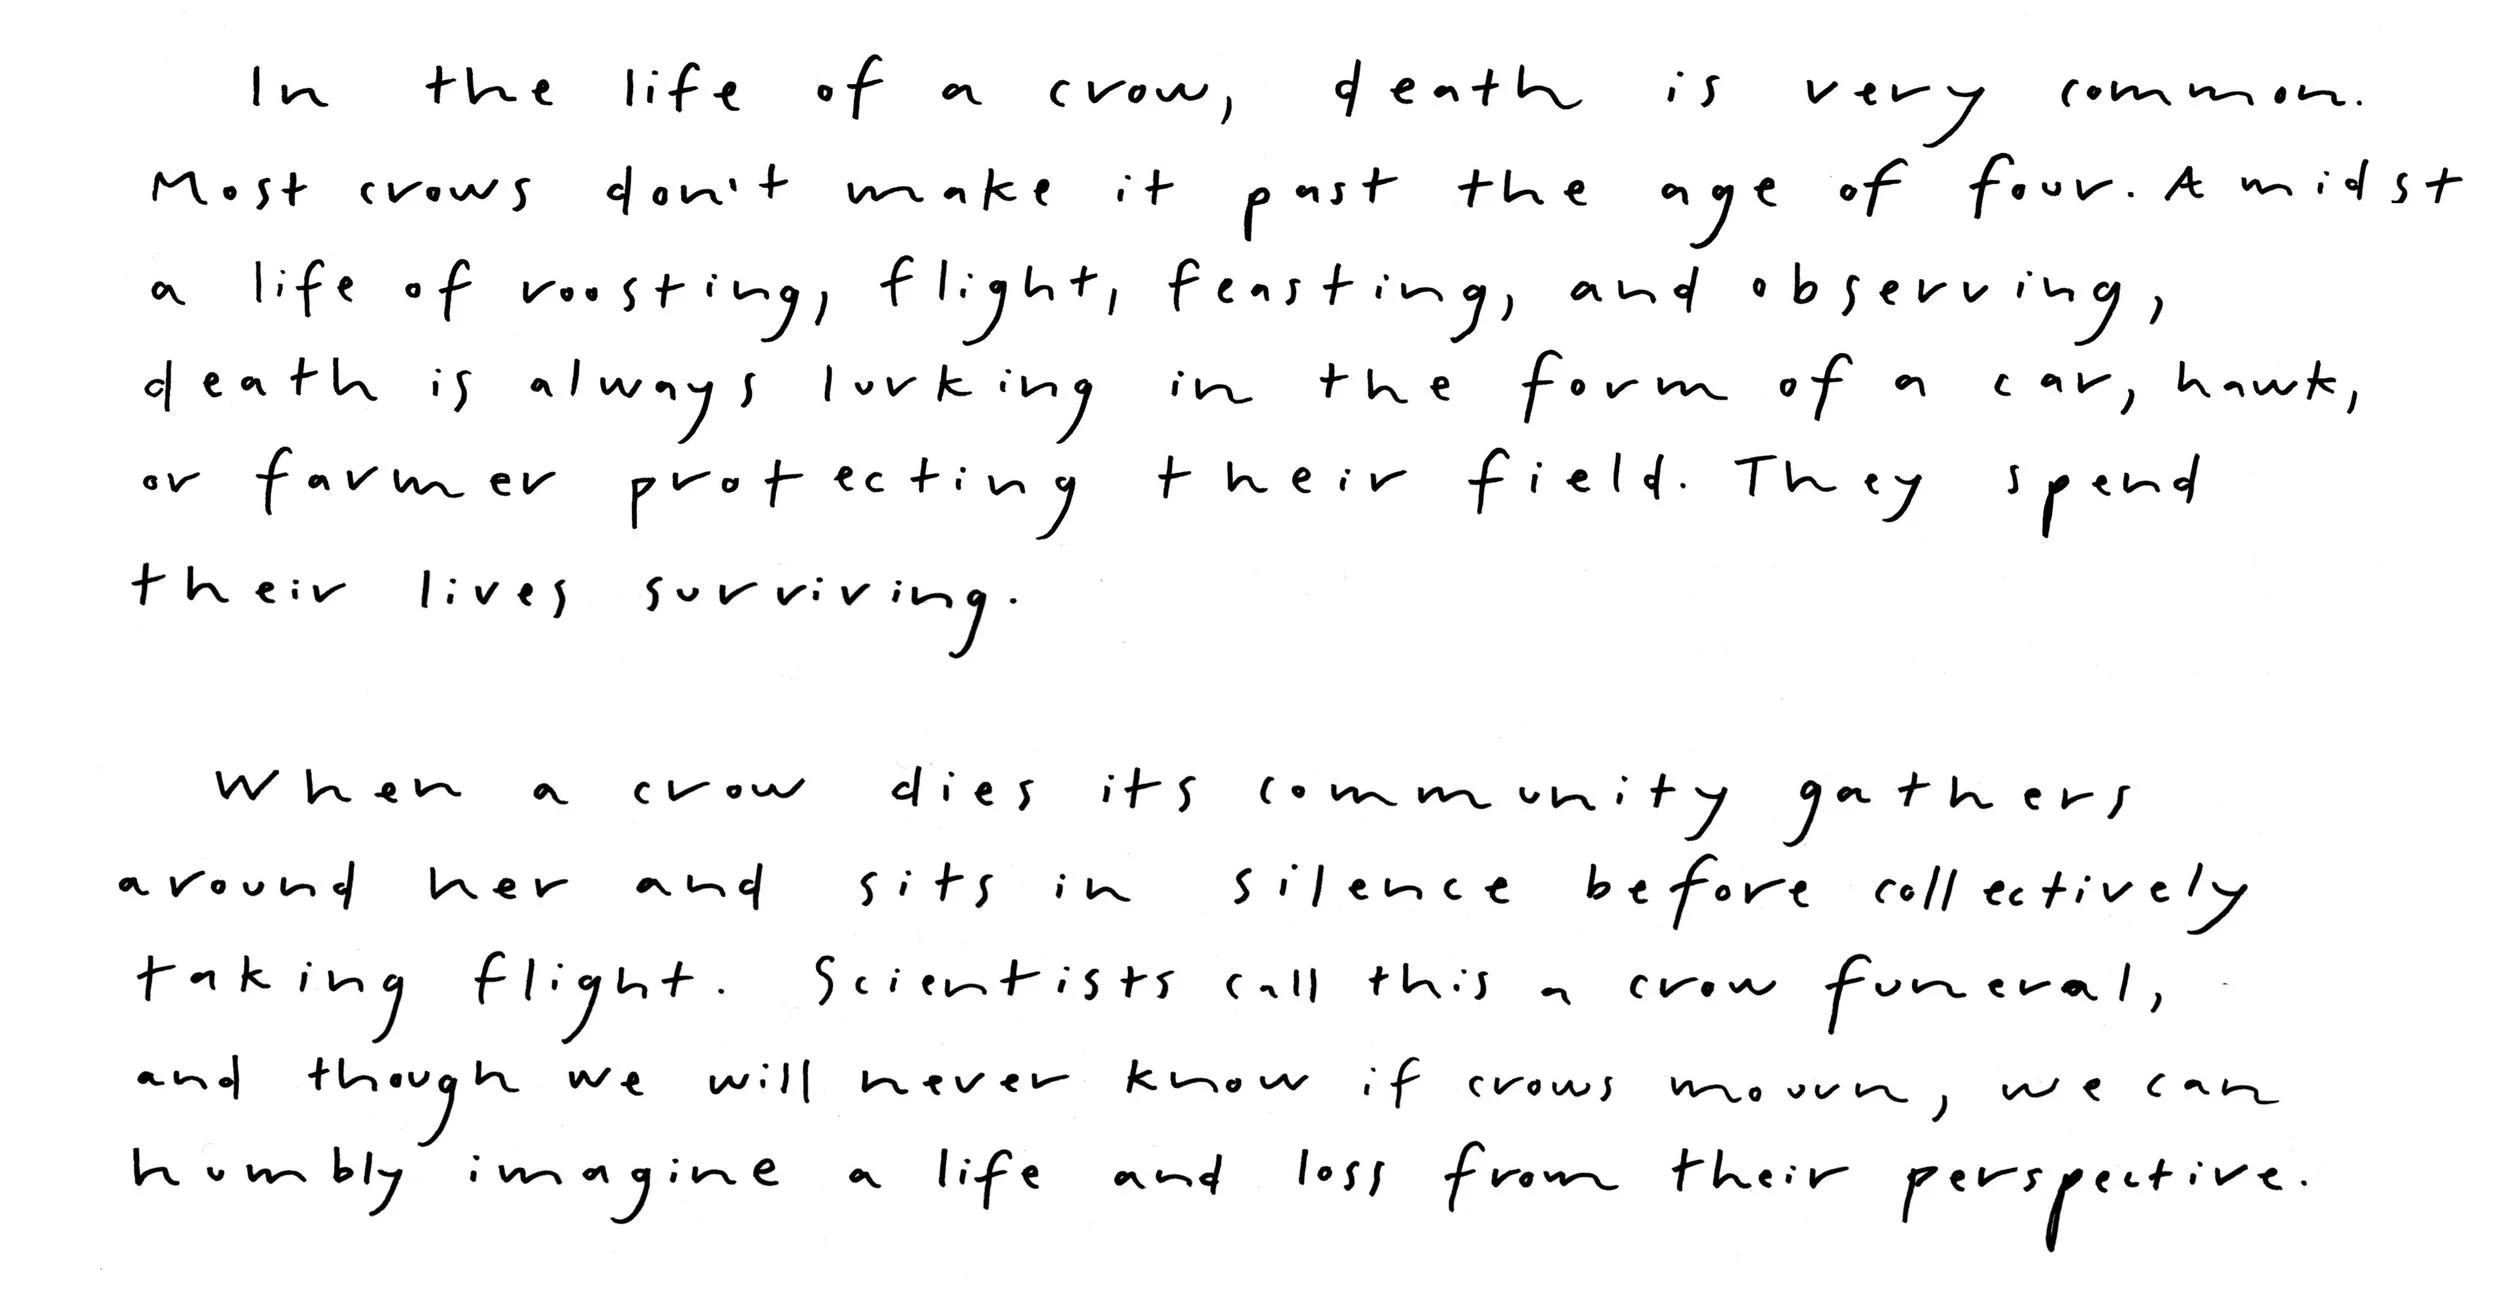 In the life of a crow, death is very common.
Most crows don't make it past the age of four. Amidst
a life of roosting, flight, feasting, and observing,
death is always lurking in the form of a car, hawk,
or farmer protecting their field. They spend
their lives surviving.
When a crow dies its community gathers
around her and sits in silence before collectively
taking flight. Scientists call this a crow funeral,
and though we will never know if crows mourn, we can
humbly imagine a life and loss from their perspective.